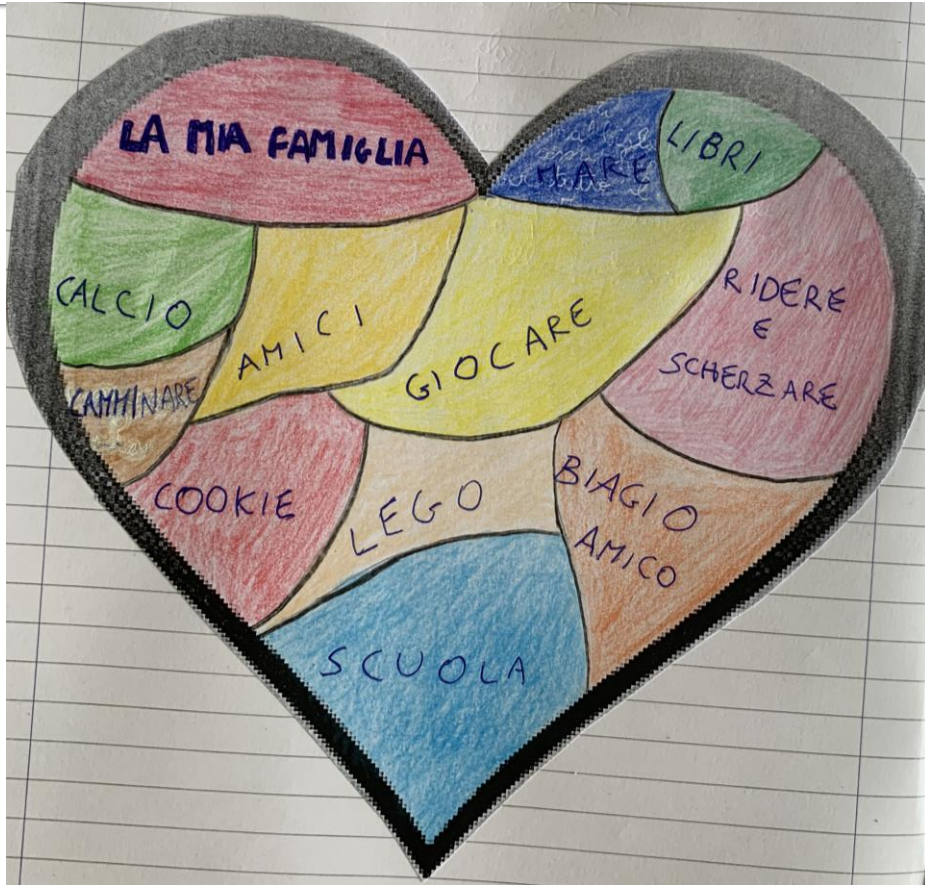 LA MIA FAMIGLIA
MARE
LIBRI
CALCIO
AMICI
GIOCARE
RIDERE
E
SCHERZARE
CAMMINARE
COOKIE
LEGO
BIAGIO
AMICO
SCUOLA